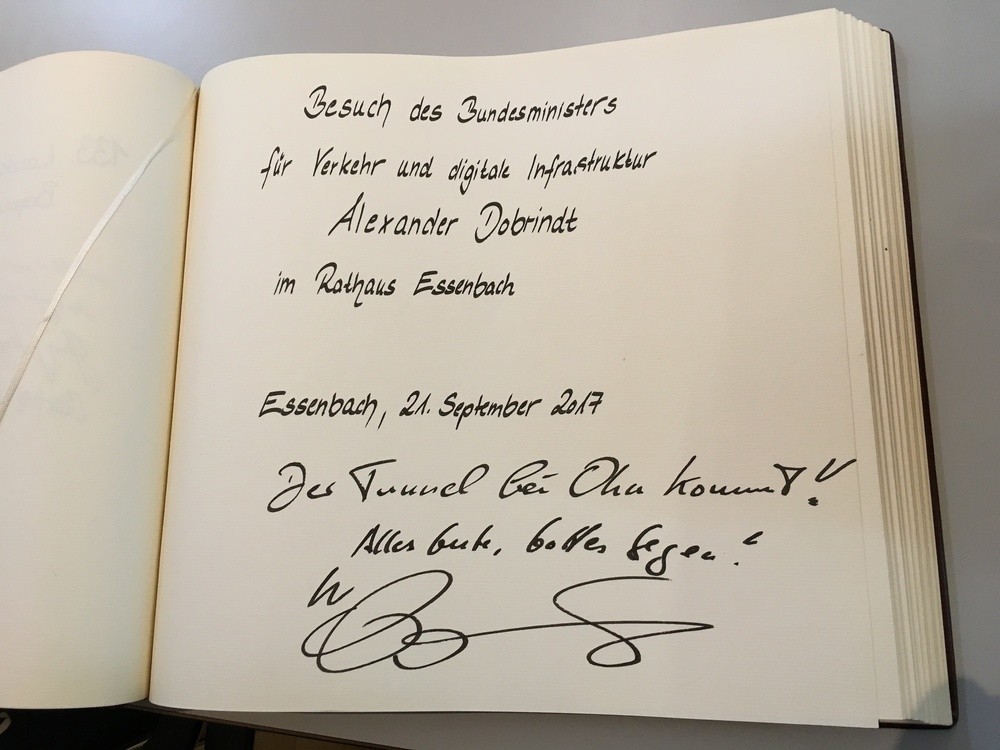 Besuch des Bundesministers
für Verkehr und digitale Infrastruktur
Alexander Dobrindt
im Rathaus Essenbach
Essenbach, 21. September 2017
Der Tunnel bei Ohu kommt!
Alles Gute, Gottes Segen!